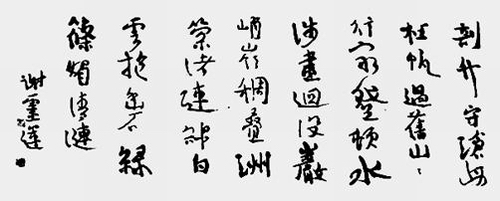 剖竹守滄海
枉帆過舊山〻
行窮登頓水
涉盡洄沿巖
峭嶺稠疊洲
縈渚連綿白
雲抱幽石綠
篠媚清漣
谢靈運